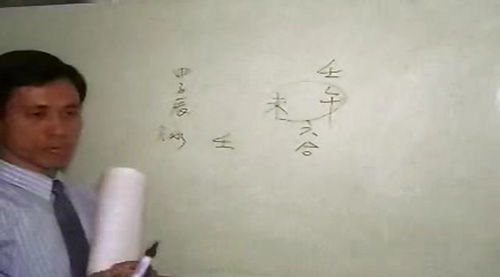 甲子
辰
壬
壬
午
未
六
合